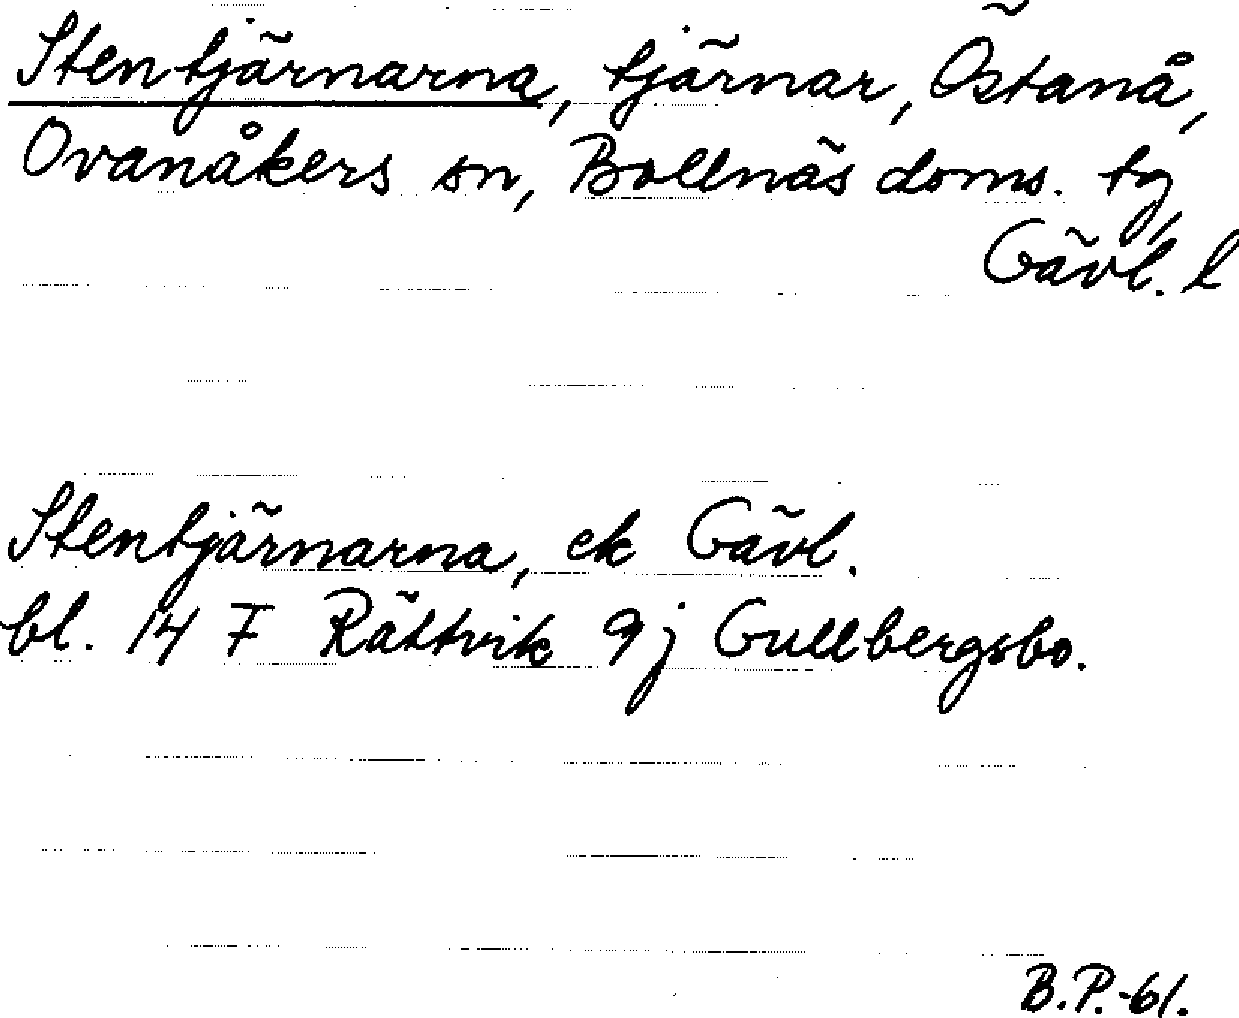 Stentjärnarna, tjärnar, Östanå,
Ovanåkers sn, Bollnäs doms. tg,
Gävl. l
Stentjärnarna, ek Gävl.
bl. 14 F Rättvik 9j Gullbergsbo.
B.P.-61.